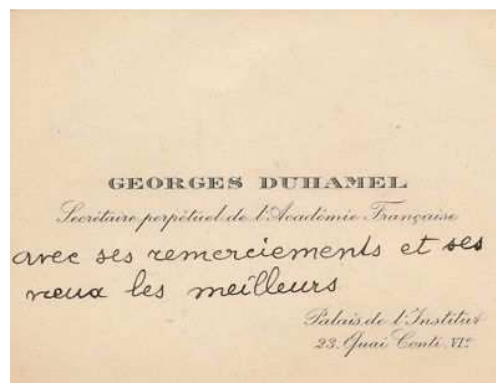 GEORGES DUHAMEL
Secrétaire perpétuel de l'Académie Française
avec ses remerciements et ses
vœux les meilleurs
Palais de l'Institut
23. Quai Conti. VIe